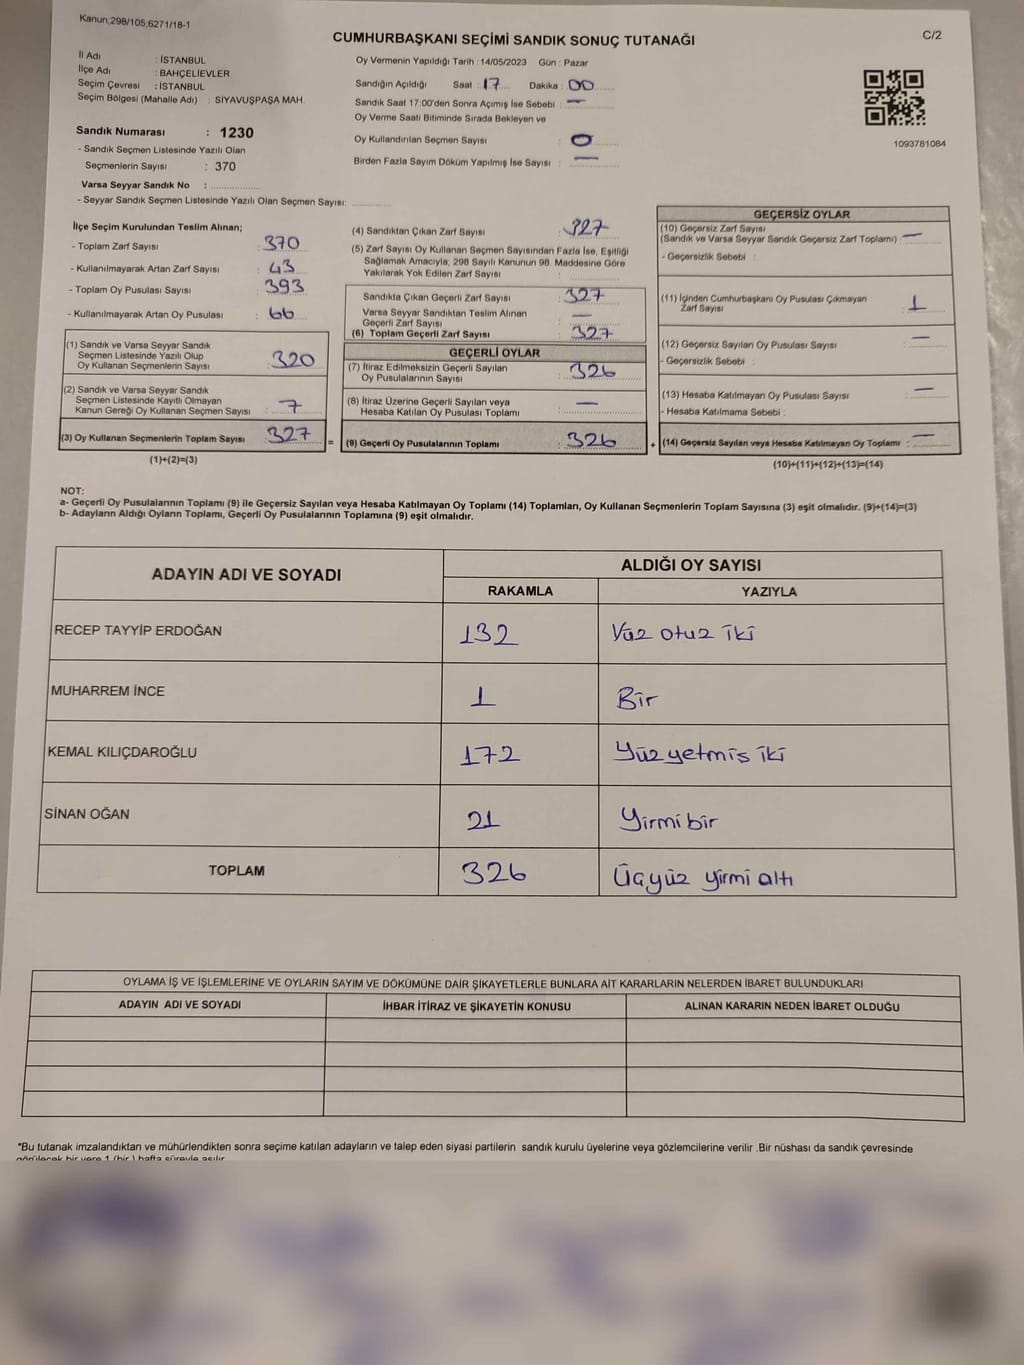 Kanun;298/105,6271/18-1
C/2
CUMHURBAŞKANI SEÇİMİ SANDIK SONUÇ TUTANAĞI
İl Adı : İSTANBUL
İlçe Adı : BAHÇELİEVLER
Seçim Çevresi : İSTANBUL
Seçim Bölgesi (Mahalle Adı) : SİYAVUŞPAŞA MAH.
Sandık Numarası : 1230
- Sandık Seçmen Listesinde Yazılı Olan
Seçmenlerin Sayısı : 370
Varsa Seyyar Sandık No :
- Seyyar Sandık Seçmen Listesinde Yazılı Olan Seçmen Sayısı:
Oy Vermenin Yapıldığı Tarih : 14/05/2023 Gün : Pazar
Sandığın Açıldığı Saat : 17 Dakika : 00
Sandık Saat 17:00'den Sonra Açımış İse Sebebi : —
Oy Verme Saati Bitiminde Sırada Bekleyen ve
Oy Kullandırılan Seçmen Sayısı : 0
Birden Fazla Sayım Döküm Yapılmış İse Sayısı : —
1093781084
İlçe Seçim Kurulundan Teslim Alınan;
- Toplam Zarf Sayısı : 370
- Kullanılmayarak Artan Zarf Sayısı : 43
- Toplam Oy Pusulası Sayısı : 393
- Kullanılmayarak Artan Oy Pusulası : 66
(1) Sandık ve Varsa Seyyar Sandık
Seçmen Listesinde Yazılı Olup
Oy Kullanan Seçmenlerin Sayısı : 320
(2) Sandık ve Varsa Seyyar Sandık
Seçmen Listesinde Kayıtlı Olmayan
Kanun Gereği Oy Kullanan Seçmen Sayısı : 7
(3) Oy Kullanan Seçmenlerin Toplam Sayısı : 327
(1)+(2)=(3)
=
(4) Sandıktan Çıkan Zarf Sayısı : 327
(5) Zarf Sayısı Oy Kullanan Seçmen Sayısından Fazla İse, Eşitliği
Sağlamak Amacıyla, 298 Sayılı Kanunun 98. Maddesine Göre
Yakılarak Yok Edilen Zarf Sayısı :
Sandıkta Çıkan Geçerli Zarf Sayısı : 327
Varsa Seyyar Sandıktan Teslim Alınan
Geçerli Zarf Sayısı : —
(6) Toplam Geçerli Zarf Sayısı : 327
GEÇERLİ OYLAR
(7) İtiraz Edilmeksizin Geçerli Sayılan
Oy Pusulalarının Sayısı : 326
(8) İtiraz Üzerine Geçerli Sayılan veya
Hesaba Katılan Oy Pusulası Toplamı : —
(9) Geçerli Oy Pusulalarının Toplamı : 326
+
GEÇERSİZ OYLAR
(10) Geçersiz Zarf Sayısı
(Sandık ve Varsa Seyyar Sandık Geçersiz Zarf Toplamı) : —
- Geçersizlik Sebebi :
(11) İçinden Cumhurbaşkanı Oy Pusulası Çıkmayan
Zarf Sayısı : 1
(12) Geçersiz Sayılan Oy Pusulası Sayısı : —
- Geçersizlik Sebebi :
(13) Hesaba Katılmayan Oy Pusulası Sayısı : —
- Hesaba Katılmama Sebebi :
(14) Geçersiz Sayılan veya Hesaba Katılmayan Oy Toplamı : —
(10)+(11)+(12)+(13)=(14)
NOT:
a- Geçerli Oy Pusulalarının Toplamı (9) ile Geçersiz Sayılan veya Hesaba Katılmayan Oy Toplamı (14) Toplamları, Oy Kullanan Seçmenlerin Toplam Sayısına (3) eşit olmalıdır. (9)+(14)=(3)
b- Adayların Aldığı Oyların Toplamı, Geçerli Oy Pusulalarının Toplamına (9) eşit olmalıdır.
ADAYIN ADI VE SOYADI ALDIĞI OY SAYISI
RAKAMLA YAZIYLA
RECEP TAYYİP ERDOĞAN 132 Yüz otuz iki
MUHARREM İNCE 1 Bir
KEMAL KILIÇDAROĞLU 172 Yüz yetmiş iki
SİNAN OĞAN 21 Yirmi bir
TOPLAM 326 Üçyüz yirmi altı
OYLAMA İŞ VE İŞLEMLERİNE VE OYLARIN SAYIM VE DÖKÜMÜNE DAİR ŞİKAYETLERLE BUNLARA AİT KARARLARIN NELERDEN İBARET BULUNDUKLARI
ADAYIN ADI VE SOYADI İHBAR İTİRAZ VE ŞİKAYETİN KONUSU ALINAN KARARIN NEDEN İBARET OLDUĞU
*Bu tutanak imzalandıktan ve mühürlendikten sonra seçime katılan adayların ve talep eden siyasi partilerin sandık kurulu üyelerine veya gözlemcilerine verilir .Bir nüshası da sandık çevresinde
görülecek bir yere 1 (bir ) hafta süreyle asılır.